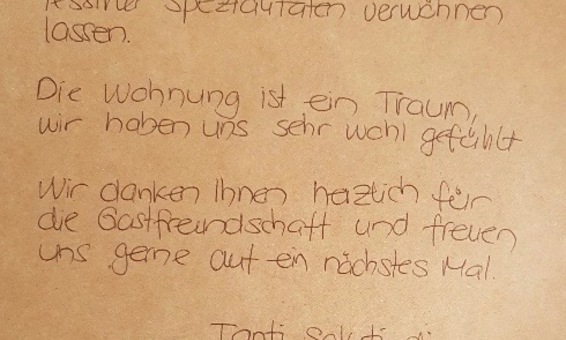 Tessiner Spezialitäten verwöhnen
lassen.
Die Wohnung ist ein Traum,
wir haben uns sehr wohl gefühlt
Wir danken Ihnen herzlich für
die Gastfreundschaft und freuen
uns gerne auf ein nächstes Mal.
Tanti saluti di